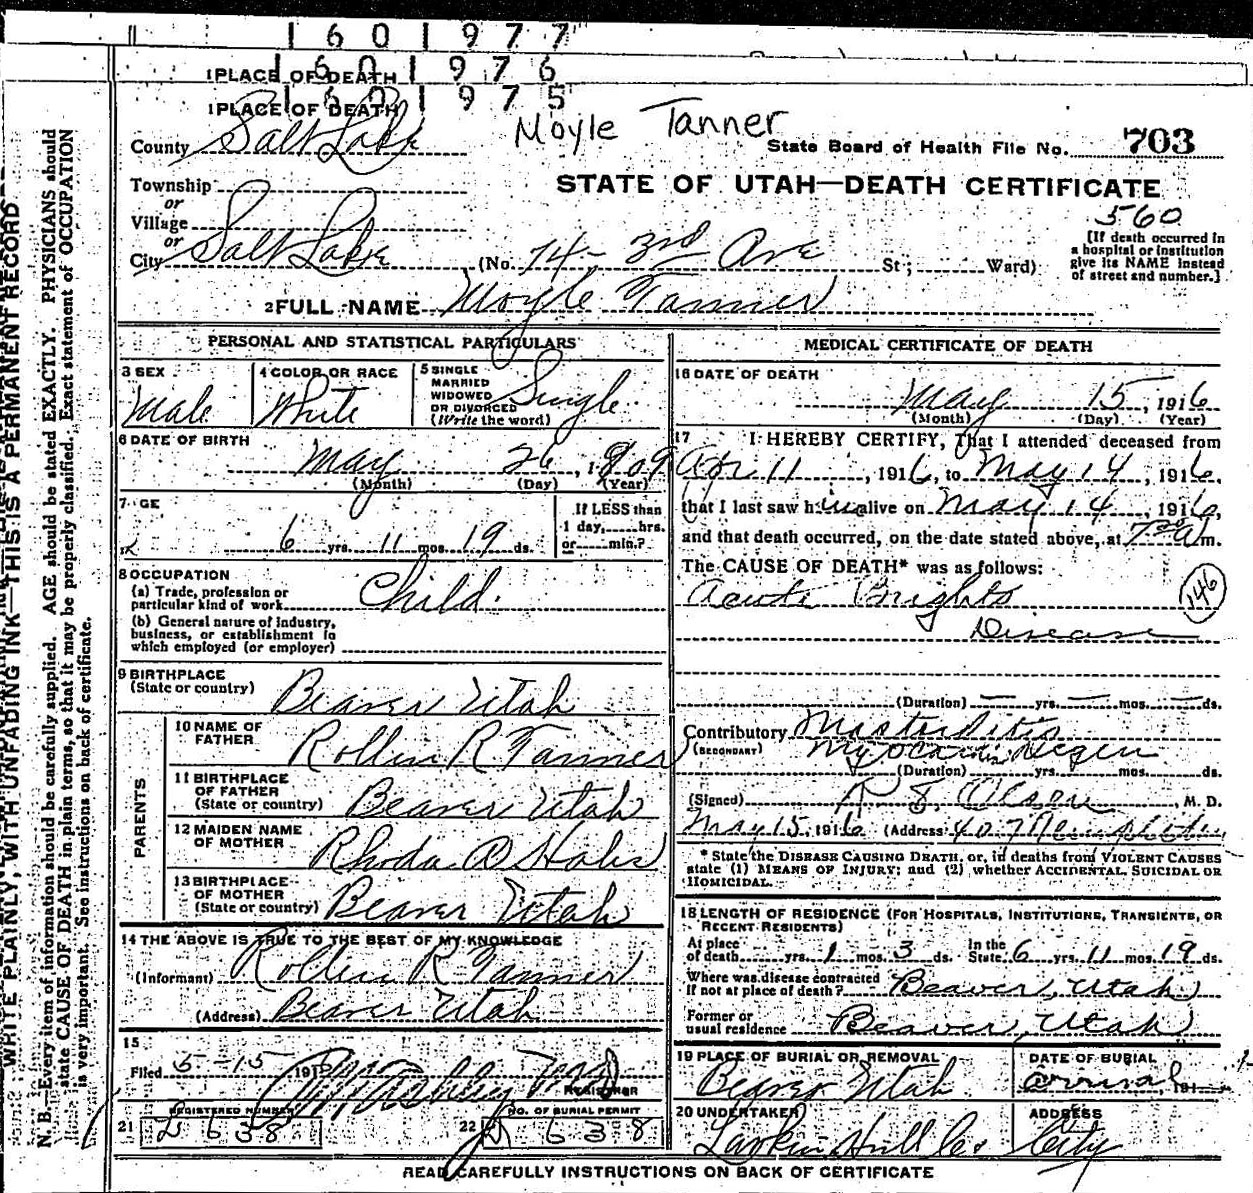 1601977
1601976
1 PLACE OF DEATH
1601975
1 PLACE OF DEATH
Moyle Tanner
County Salt Lake
State Board of Health File No. 703
Township
or
Village
or
City Salt Lake
STATE OF UTAH—DEATH CERTIFICATE
560
[If death occurred in
a hospital or institution
give its NAME instead
of street and number.]
(No. 74 - 3rd Ave St; Ward)
2 FULL NAME Moyle Tanner
PERSONAL AND STATISTICAL PARTICULARS
3 SEX
Male
4 COLOR OR RACE
White
5 SINGLE
MARRIED
WIDOWED
OR DIVORCED
(Write the word)
Single
6 DATE OF BIRTH
May 26, 1909
(Month) (Day) (Year)
7 AGE
6 yrs. 11 mos. 19 ds.
If LESS than
1 day, hrs.
or min.?
8 OCCUPATION
(a) Trade, profession or
particular kind of work Child.
(b) General nature of industry,
business, or establishment in
which employed (or employer)
9 BIRTHPLACE
(State or country) Beaver Utah
PARENTS
10 NAME OF
FATHER Rollin R Tanner
11 BIRTHPLACE
OF FATHER
(State or country) Beaver Utah
12 MAIDEN NAME
OF MOTHER Rhoda
13 BIRTHPLACE
OF MOTHER
(State or country) Beaver Utah
14 THE ABOVE IS TRUE TO THE BEST OF MY KNOWLEDGE
(Informant) Rollin R Tanner
(Address) Beaver Utah
15
Filed 5-15 191
REGISTRAR
21 REGISTERED NUMBER
638
22 NO. OF BURIAL PERMIT
638
MEDICAL CERTIFICATE OF DEATH
16 DATE OF DEATH
May 15, 1916
(Month) (Day) (Year)
17 I HEREBY CERTIFY, That I attended deceased from
Apr 11, 1916, to May 14, 1916,
that I last saw him alive on May 14, 1916,
and that death occurred, on the date stated above, at 7 30 A m.
The CAUSE OF DEATH* was as follows:
Acute Brights
146
Disease
(Duration) — yrs. — mos. — ds.
Contributory Mastoiditis
(SECONDARY) Myocardia Degen
(Duration) yrs. mos. ds.
(Signed) Olson, M. D.
May 15, 1916 (Address) 407
* State the DISEASE CAUSING DEATH, or, in deaths from VIOLENT CAUSES
state (1) MEANS OF INJURY; and (2) whether ACCIDENTAL, SUICIDAL OR
HOMICIDAL.
18 LENGTH OF RESIDENCE (FOR HOSPITALS, INSTITUTIONS, TRANSIENTS, OR
RECENT RESIDENTS)
At place
of death yrs. 1 mos. 3 ds. In the
State 6 yrs. 11 mos. 19 ds.
Where was disease contracted
if not at place of death? Beaver, Utah
Former or
usual residence Beaver, Utah
19 PLACE OF BURIAL OR REMOVAL
Beaver Utah
DATE OF BURIAL
arrival 191
20 UNDERTAKER
Larkin Hull Co
ADDRESS
City
READ CAREFULLY INSTRUCTIONS ON BACK OF CERTIFICATE
WRITE PLAINLY, WITH UNFADING INK—THIS IS A PERMANENT RECORD
N. B.—Every item of information should be carefully supplied. AGE should be stated EXACTLY. PHYSICIANS should
state CAUSE OF DEATH in plain terms, so that it may be properly classified. Exact statement of OCCUPATION
is very important. See instructions on back of certificate.